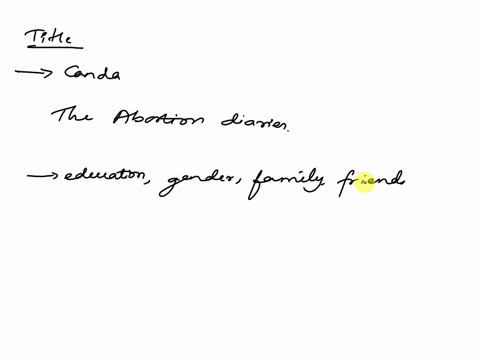 Title
→ Canda
The Abortion diaries.
→ education, gender, family friends